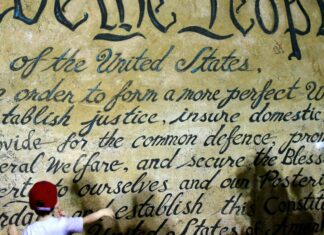 We the People
of the United States,
order to form a more perfect
establish justice, insure domestic
provide for the common defence, prom
eral Welfare, and secure the Bless
to ourselves and our Posteri
and establish this Constit
ted States of Americ